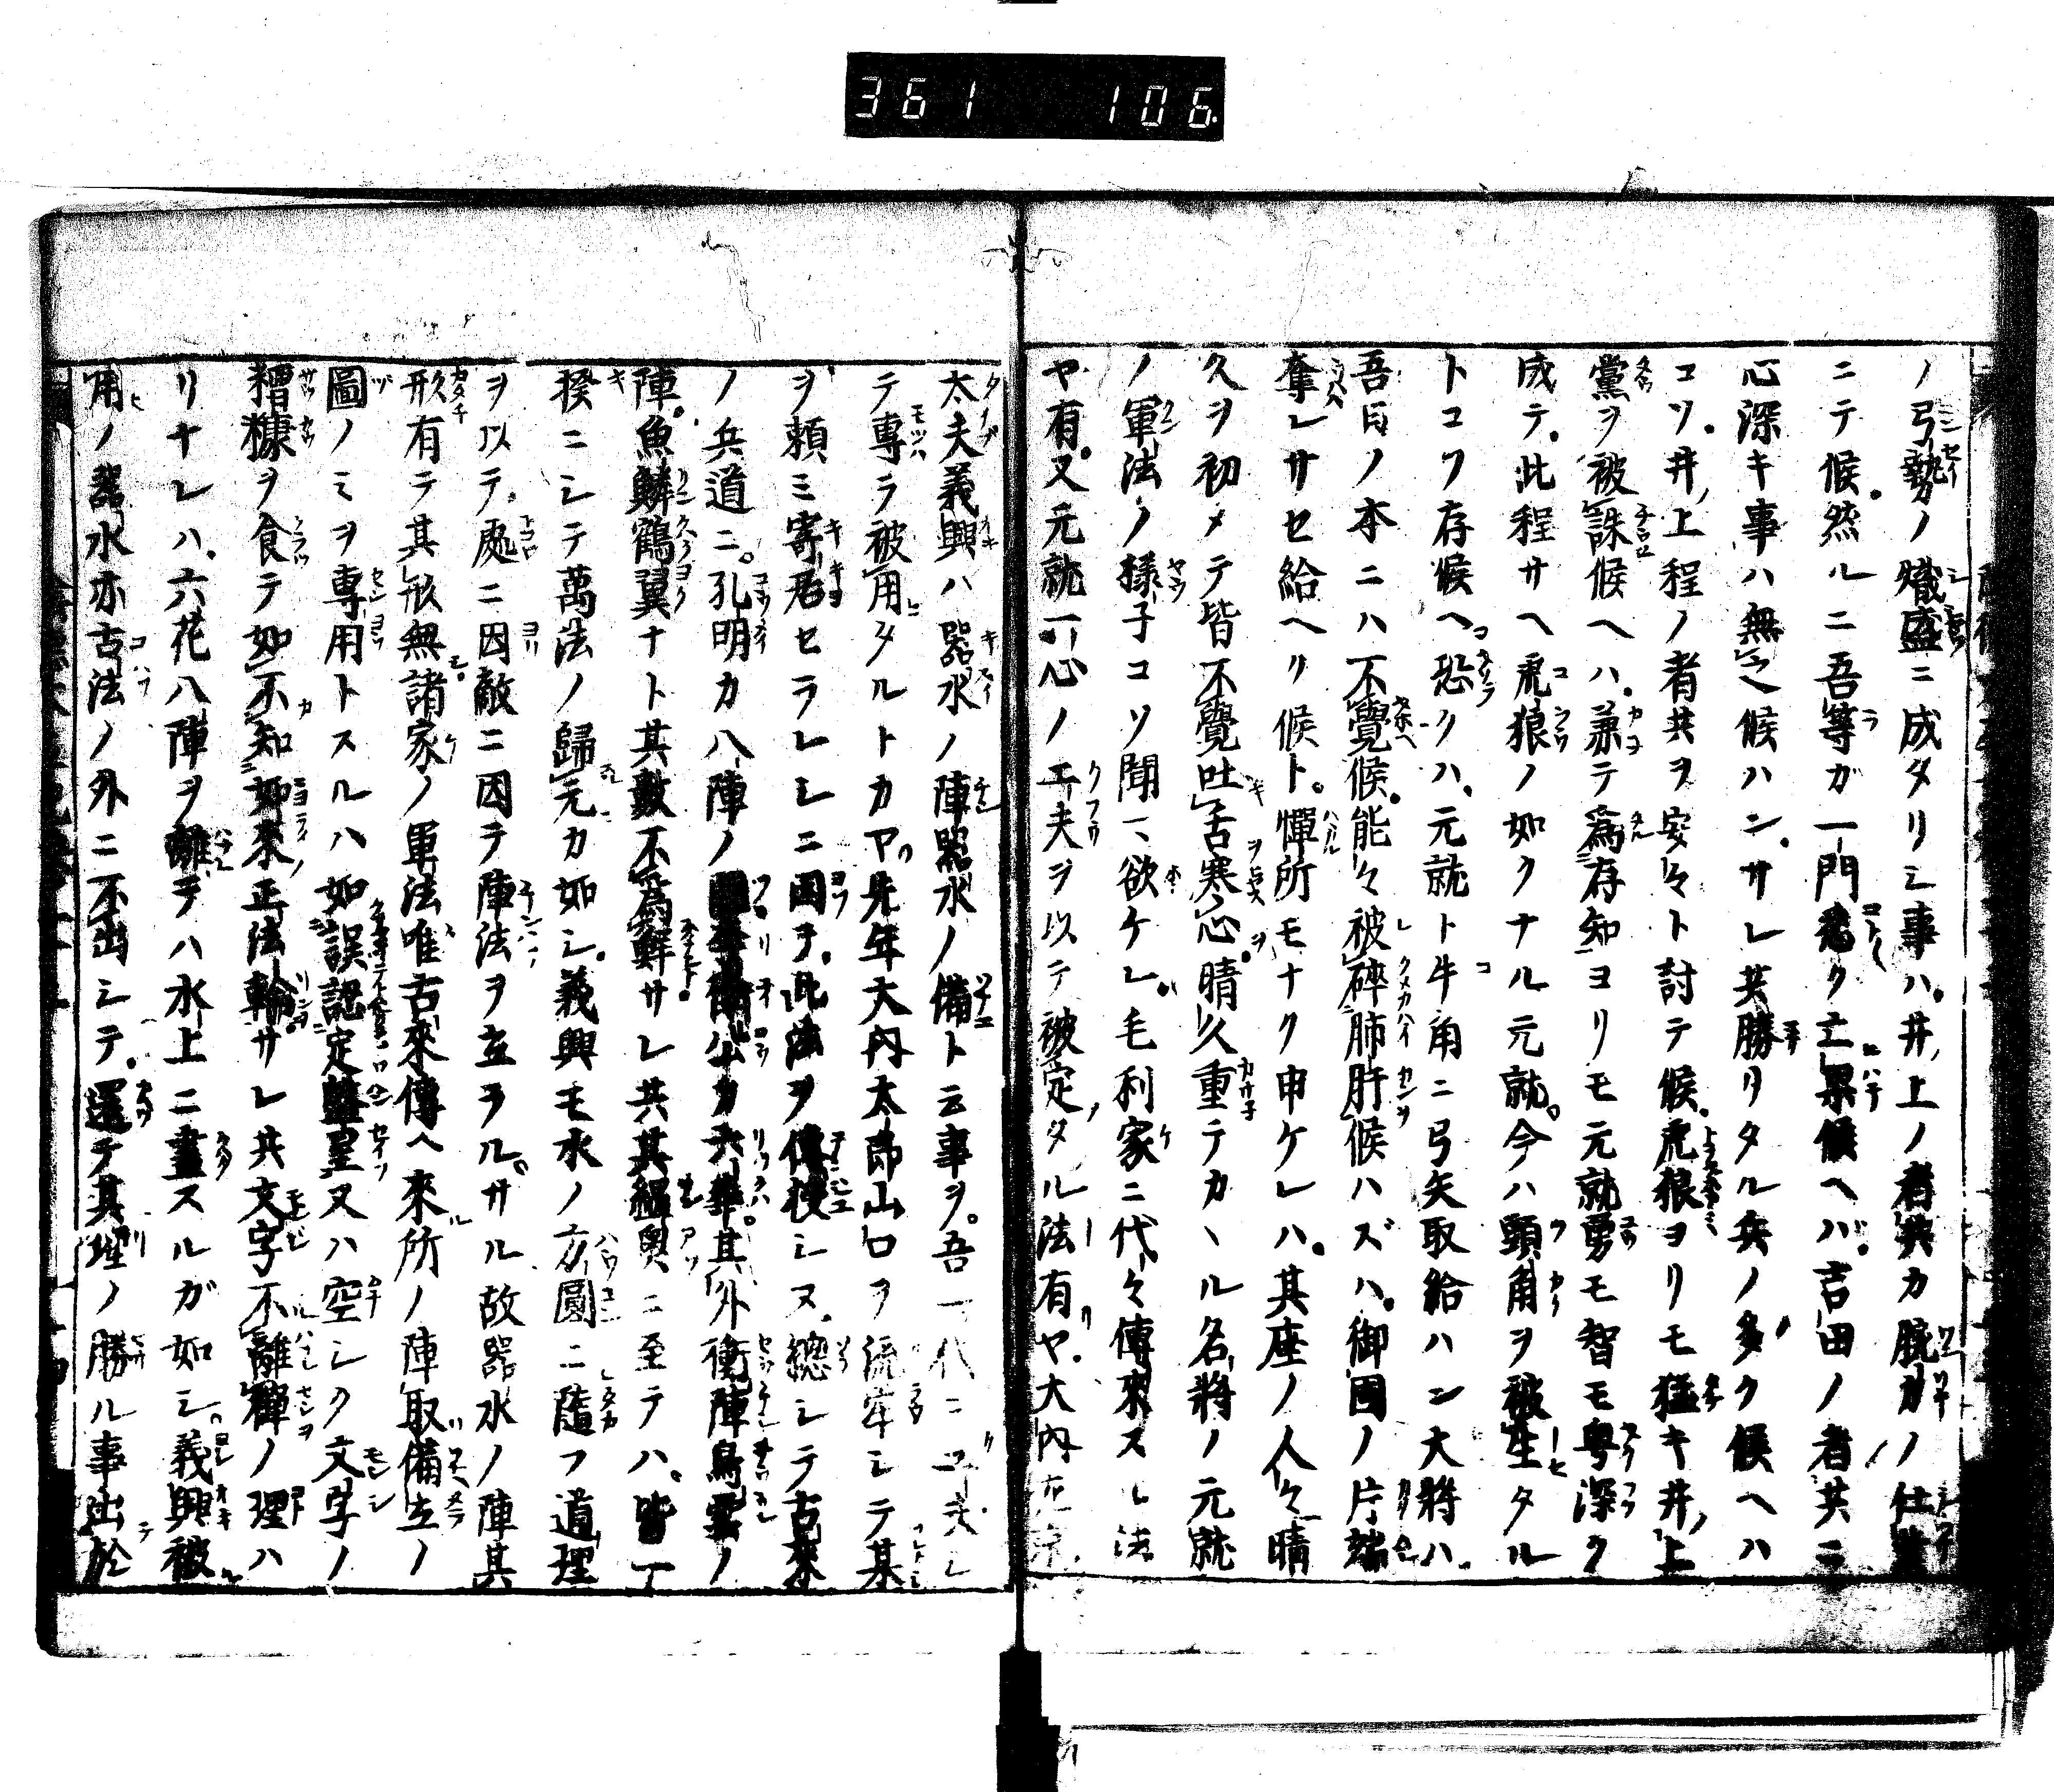 361 106
ノ弓勢ノ熾盛ニ成タリシ事ハ。井ノ上ノ者共カ腕力ノ仕業
ニテ候。然ルニ吾等ガ一門悉ク亡果候ヘバ。吉田ノ者共ニ
心深キ事ハ無之候ハン。サレ共勝リタル兵ノ多ク候ヘハ
コソ。井ノ上程ノ者共ヲ安々ト討テ候。虎狼ヨリモ猛キ井ノ上
黨ヲ被誅候ヘハ。兼テ為存知ヨリモ元就勇モ智モ粤深ク
成テ。此程サヘ虎狼ノ如クナル元就。今ハ頭角ヲ被生タル
トコソ存候ヘ恐クハ、元就ト牛角ニ弓矢取給ハン大將ハ。
吾日ノ本ニハ不覺候。能々被碎肺肝候ハズハ。御國ノ片端
奪レサセ給ヘリ候ト。憚所モナク申ケレハ。其座ノ人々晴
久ヲ初メテ皆不覺吐舌寒心。晴久重テカヽル名將ノ元就
ノ軍法ノ様子コソ聞ヽ欲ケレ。毛利家ニ代々傳來スル法
ヤ有。又元就一心ノ工夫ヲ以テ被定タル法有ヤ。大内左京
太夫義興ハ器水ノ陣器水ノ備ト云事ヲ。吾一代ニ
テ專ラ被用タルトカヤ。先年大内太郎山口ヲ流牢シテ某
ヲ頼ミ寄君セラレシニ因ヲ。此法ヲ傳授シヌ。總シテ古來
ノ兵道ニ。孔明カ八陣ノ圖李衛公カ六華。其外衝陣鳥雲ノ
陣。魚鱗鶴翼ナト其數不為鮮サレ共其縕奧ニ至テハ。皆一
揆ニシテ萬法ノ歸元カ如シ。義興モ水ノ方圓ニ隨フ道理
ヲ以テ。處ニ因敵ニ因テ陣法ヲ立ヲル。サル故器水ノ陣其
形有テ其形無。諸家ノ軍法唯古來傳ヘ來所ノ陣取備立ノ
圖ノミヲ專用トスルハ如誤認定盤星又ハ空シク文字ノ
糟糠ヲ食テ如不知如來正法輪。サレ共文字不離禪ノ理ハ
リナレハ。六花八陣ヲ離テハ水上ニ畫スルガ如シ。義興被
用ノ器水亦古法ノ外ニ不出シテ。還テ其理ノ勝ル事出於